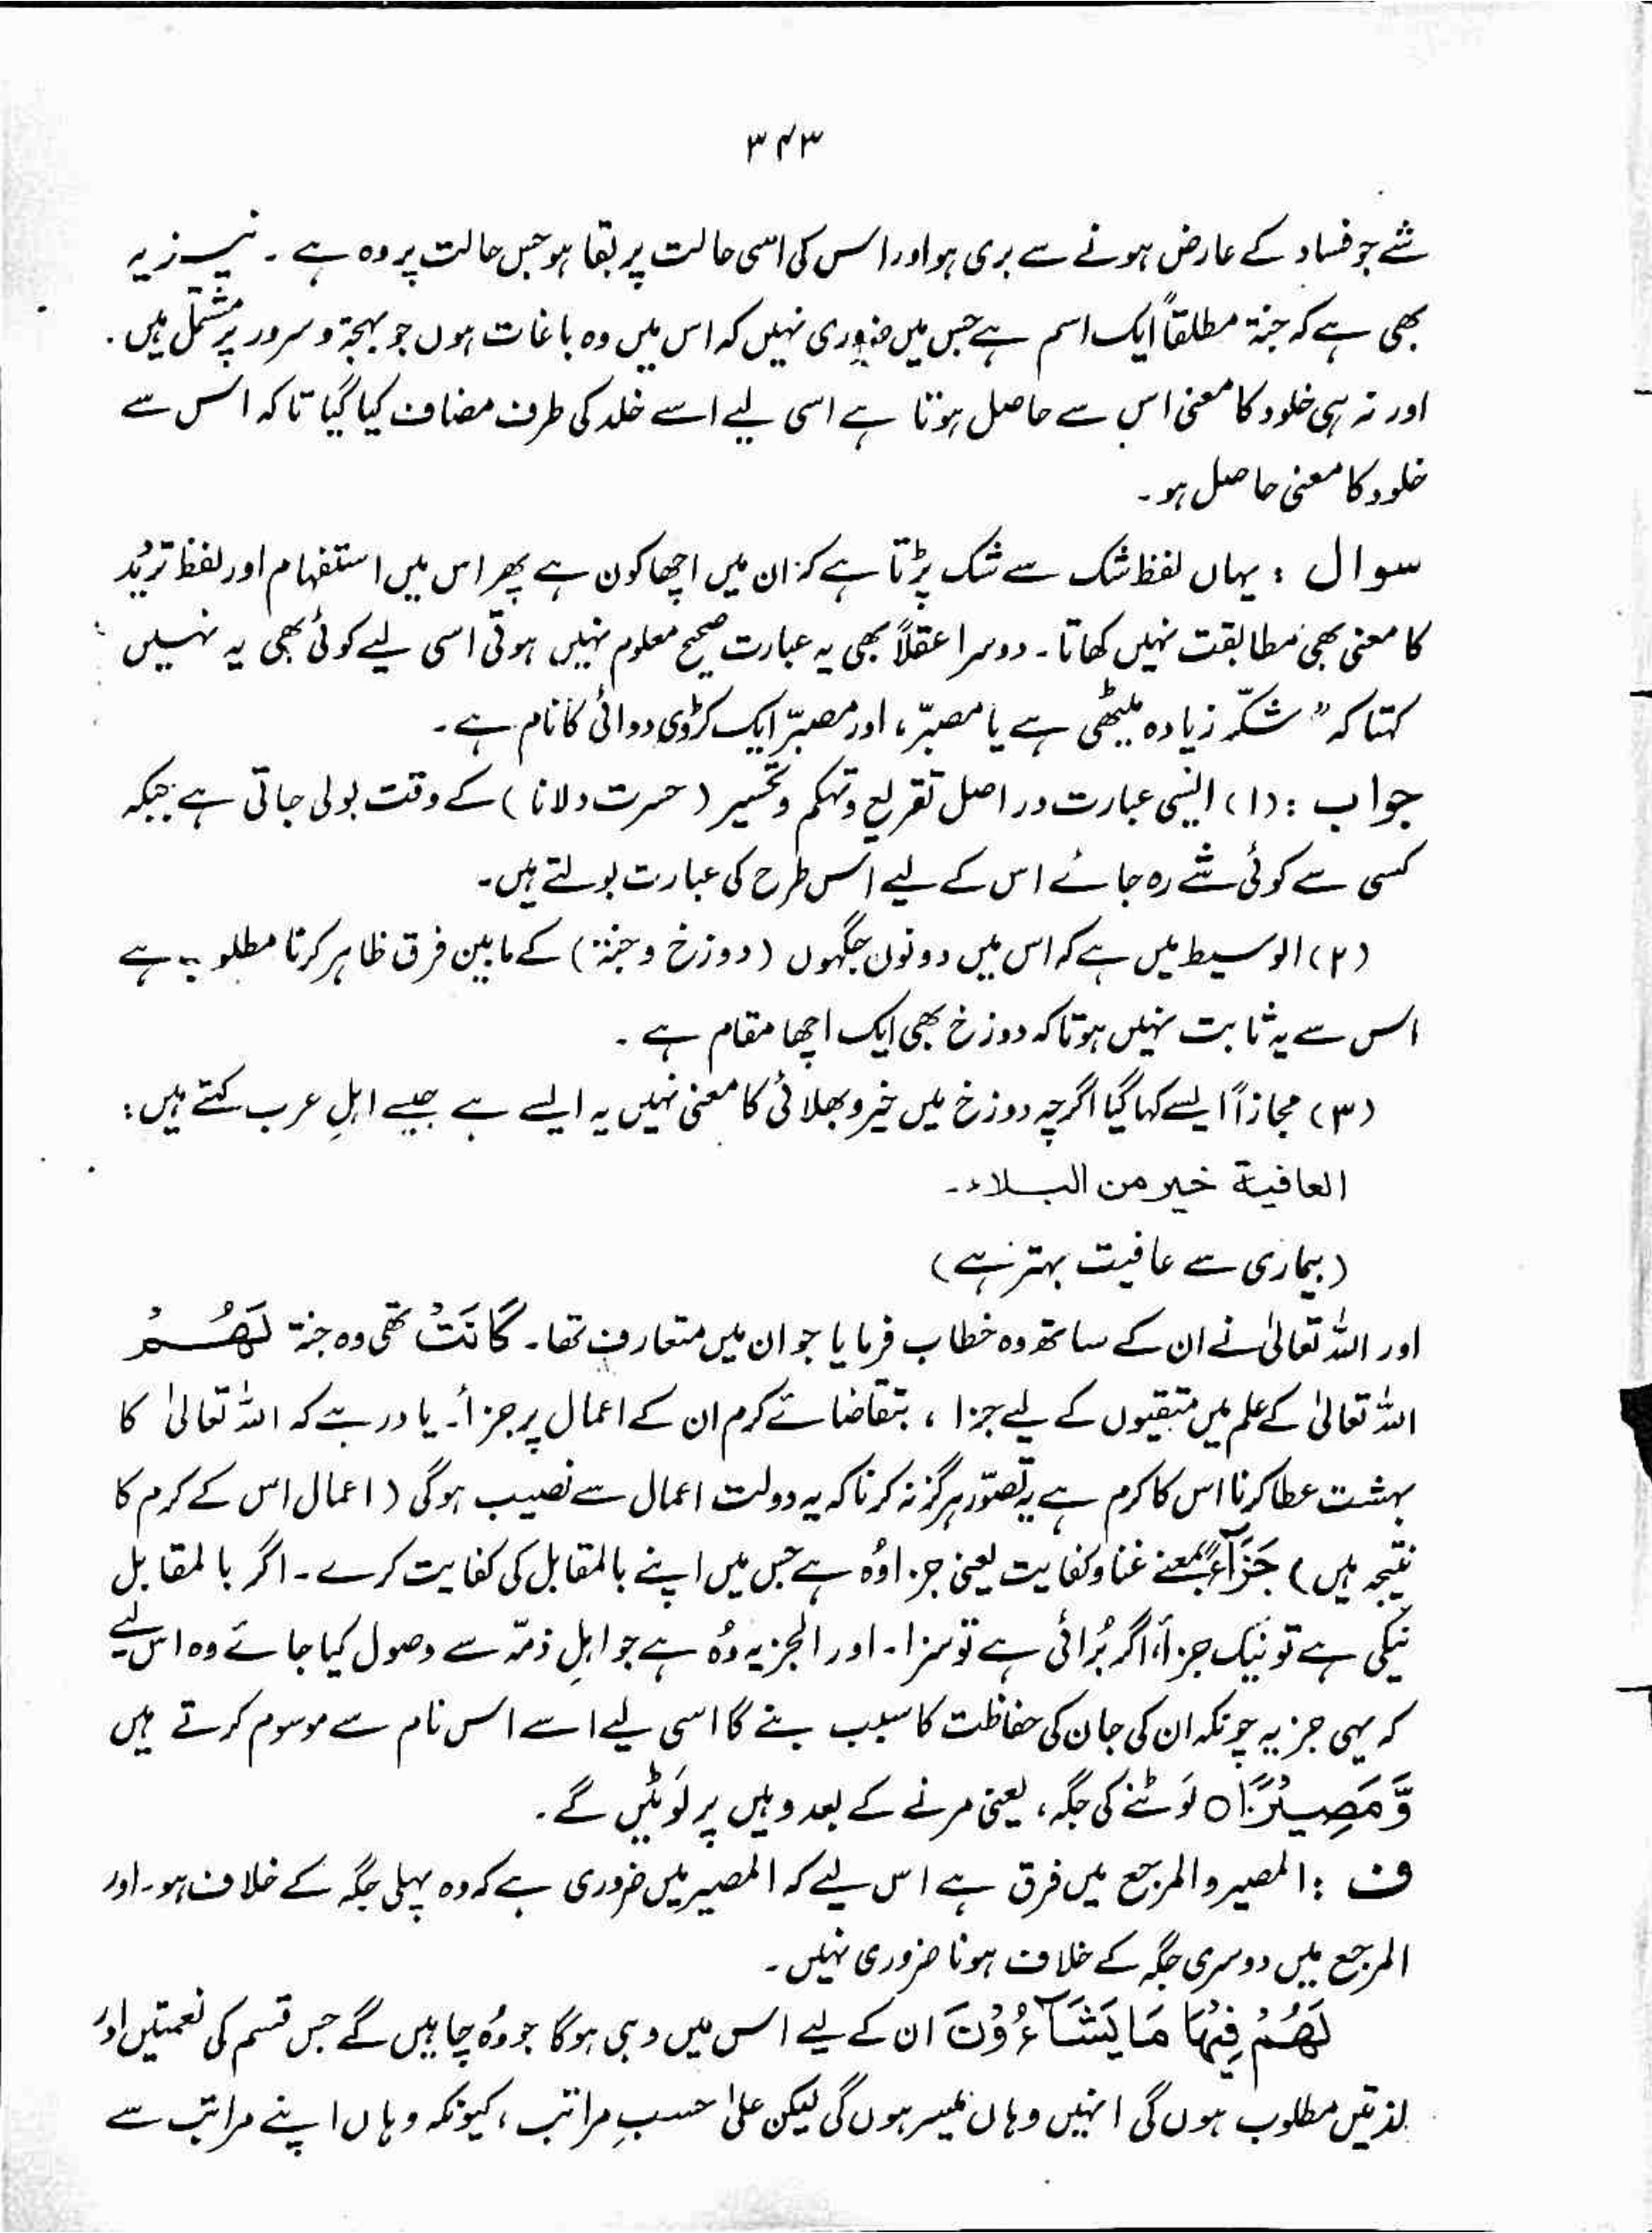 ۳۴۳
شے جو فساد کے عارض ہونے سے بری ہو اور اس کی اسی حالت پر بقا ہو جس حالت پر وہ ہے ۔ نیز یہ
بھی ہے کہ جنۃ مطلقاً ایک اسم ہے جس میں ضروری نہیں کہ اس میں وہ باغات ہوں جو بہجۃ و سرور پر مشتمل ہیں ۔
اور نہ ہی خلود کا معنی اس سے حاصل ہوتا ہے اسی لیے اسے خلد کی طرف مضاف کیا گیا تاکہ اس سے
خلود کا معنی حاصل ہو ۔
سوال : یہاں لفظ شک سے شک پڑتا ہے کہ ان میں اچھا کون ہے پھر اس میں استفہام اور لفظ تردید
کا معنی بھی مطابقت نہیں کھاتا ۔ دوسرا عقلاً بھی یہ عبارت صحیح معلوم نہیں ہوتی اسی لیے کوئی بھی یہ نہیں
کہتا کہ " شکّر زیادہ میٹھی ہے یا مصبّر ، اور مصبّر ایک کڑوی دوائی کا نام ہے ۔
جواب : (۱) ایسی عبارت در اصل تقریع و تہکم و تحسیر ( حسرت دلانا ) کے وقت بولی جاتی ہے جبکہ
کسی سے کوئی شے رہ جائے اس کے لیے اس طرح کی عبارت بولتے ہیں ۔
(۲) الوسیط میں ہے کہ اس میں دونوں جگہوں ( دوزخ و جنۃ ) کے مابین فرق ظاہر کرنا مطلوب ہے
اس سے یہ ثابت نہیں ہوتا کہ دوزخ بھی ایک اچھا مقام ہے ۔
(۳) مجازاً ایسے کہا گیا اگرچہ دوزخ میں خیر و بھلائی کا معنی نہیں یہ ایسے ہے جیسے اہلِ عرب کہتے ہیں :
العافیة خیر من البلاء ۔
( بیماری سے عافیت بہتر ہے )
اور اللہ تعالیٰ نے ان کے ساتھ وہ خطاب فرمایا جو ان میں متعارف تھا ۔ كَانَتْ تھی وہ جنۃ لَهُمْ
اللہ تعالیٰ کے علم میں متقیوں کے لیے جزا ، بتقاضائے کرم ان کے اعمال پر جزأ ۔ یاد رہے کہ اللہ تعالیٰ کا
بہشت عطا کرنا اس کا کرم ہے یہ تصوّر ہرگز نہ کرنا کہ یہ دولت اعمال سے نصیب ہوگی ( اعمال اس کے کرم کا
نتیجہ ہیں ) جَزَآءً بمعنے غنا و کفایت یعنی جزا وُہ ہے جس میں اپنے بالمقابل کی کفایت کرے ۔ اگر بالمقابل
نیکی ہے تو نیک جزأ، اگر بُرائی ہے تو سزا ۔ اور الجزیہ وُہ ہے جو اہلِ ذمّہ سے وصول کیا جائے وہ اس لیے
کہ یہی جزیہ چونکہ ان کی جان کی حفاظت کا سبب بنے گا اسی لیے اسے اس نام سے موسوم کرتے ہیں
وَّ مَصِيْرًا ○ لَوٹنے کی جگہ ، یعنی مرنے کے بعد وہیں پر لَوٹیں گے ۔
ف : المصیر و المرجع میں فرق ہے اس لیے کہ المصیر میں ضروری ہے کہ وہ پہلی جگہ کے خلاف ہو ۔ اور
المرجع میں دوسری جگہ کے خلاف ہونا ضروری نہیں ۔
لَهُمْ فِيْهَا مَا يَشَآءُوْنَ ان کے لیے اس میں وہی ہوگا جو وُہ چاہیں گے جس قسم کی نعمتیں اور
لذتیں مطلوب ہوں گی انہیں وہاں میسر ہوں گی لیکن علیٰ حسبِ مراتب ، کیونکہ وہاں اپنے مراتب سے